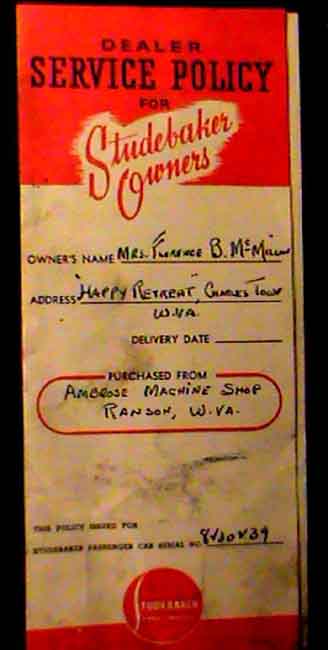 DEALER
SERVICE POLICY
FOR
Studebaker
Owners
OWNER'S NAME MRS. FLORENCE B. McMILLAN
ADDRESS "HAPPY RETREAT", CHARLES TOWN
W.VA.
DELIVERY DATE
PURCHASED FROM
AMBROSE MACHINE SHOP
RANSON, W.VA.
THIS POLICY ISSUED FOR
STUDEBAKER PASSENGER CAR SERIAL NO.
STUDEBAKER